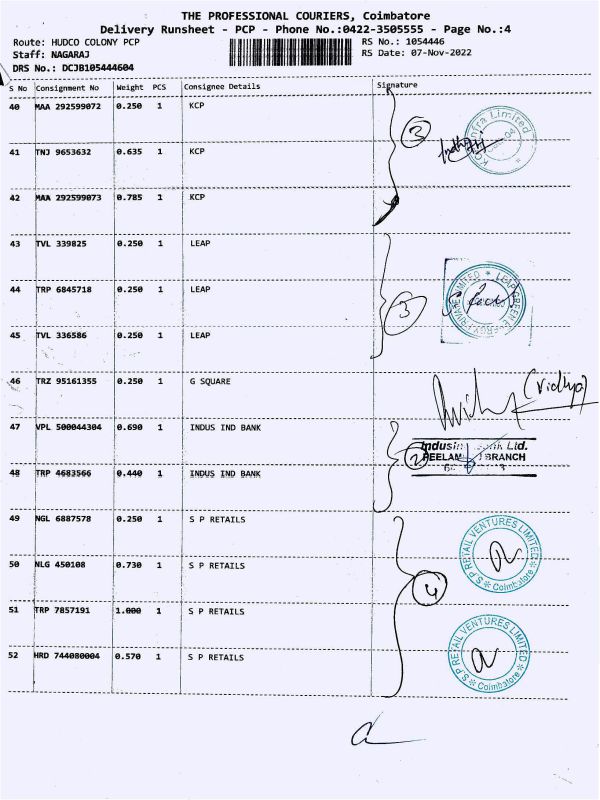 THE PROFESSIONAL COURIERS, Coimbatore
Delivery Runsheet - PCP - Phone No.:0422-3505555 - Page No.:4
Route: HUDCO COLONY PCP
RS No.: 1054446
Staff: NAGARAJ
RS Date: 07-Nov-2022
DRS No.: DCJB105444604
S No Consignment No Weight PCS Consignee Details Signature
40 MAA 292599072 0.250 1 KCP
3
Infra Limited
41 TNJ 9653632 0.635 1 KCP
42 MAA 292599073 0.785 1 KCP
43 TVL 339825 0.250 1 LEAP
44 TRP 6845718 0.250 1 LEAP
3
LEAP GREEN ENERGY PRIVATE LIMITED
45 TVL 336586 0.250 1 LEAP
46 TRZ 95161355 0.250 1 G SQUARE
(Vidhya)
47 VPL 500044304 0.690 1 INDUS IND BANK
2
Ltd.
BRANCH
48 TRP 4683566 0.440 1 INDUS IND BANK
49 NGL 6887578 0.250 1 S P RETAILS
S.P RETAIL VENTURES LIMITED
Coimbatore
50 NLG 450108 0.730 1 S P RETAILS
4
51 TRP 7857191 1.000 1 S P RETAILS
52 HRD 744080004 0.570 1 S P RETAILS
S.P RETAIL VENTURES LIMITED
Coimbatore